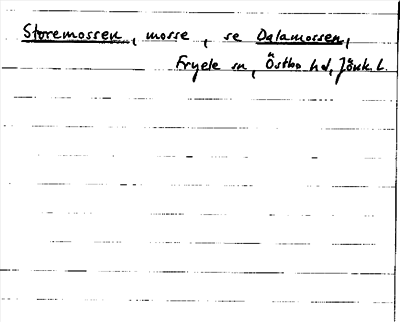 Storemossen, mosse, se Dalamossen,
Fryele sn, Östbo hd, Jönk. l.